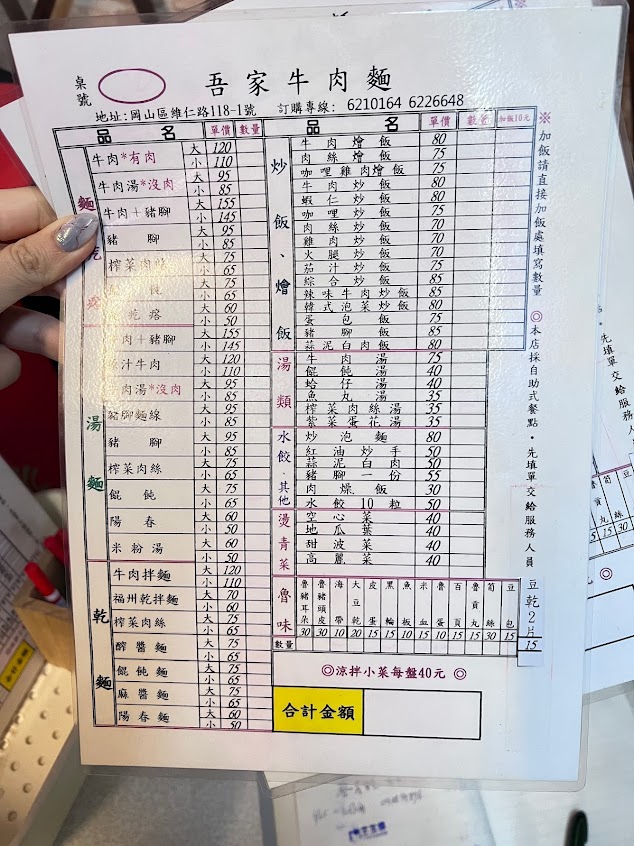 吾家牛肉麵
桌號
地址:岡山區維仁路118-1號 訂購專線: 6210164 6226648
品名 單價 數量
牛肉*有肉 大 120
小 110
牛肉湯*沒肉 大 95
小 85
牛肉+豬腳 大 155
小 145
豬腳 大 95
小 85
榨菜肉 大 75
小 65
大 75
小 65
乾 大 60
小 50
湯麵
肉+豬腳 大 155
小 145
汁牛肉 大 120
小 110
肉湯*沒肉 大 95
小 85
豬腳麵線 大 95
小 85
豬腳 大 95
小 85
榨菜肉絲 大 75
小 65
餛飩 大 75
小 65
陽春 大 60
小 50
米粉湯 大 60
小 50
乾麵
牛肉拌麵 大 120
小 110
福州乾拌麵 大 70
小 60
榨菜肉絲 大 75
小 65
醡醬麵 大 75
小 65
餛飩麵 大 75
小 65
麻醬麵 大 75
小 65
陽春麵 大 60
小 50
品名 單價 數量 加飯10元
炒飯、燴飯
牛肉燴飯 80
肉絲燴飯 75
咖哩雞肉燴飯 75
牛肉炒飯 80
蝦仁炒飯 80
咖哩炒飯 75
肉絲炒飯 70
雞肉炒飯 70
火腿炒飯 70
茄汁炒飯 75
綜合炒飯 85
辣味牛肉炒飯 85
韓式泡菜炒飯 80
蛋包飯 80
豬腳飯 85
蒜泥白肉飯 80
湯類
牛肉湯 75
餛飩湯 40
蛤仔湯 40
魚丸湯 35
榨菜肉絲湯 35
紫菜蛋花湯 35
水餃.其他
炒泡麵 80
紅油炒手 50
蒜泥白肉 50
豬腳一份 55
肉燥飯 30
水餃10粒 50
燙青菜
空心菜 40
地瓜葉 40
甜波菜 40
高麗菜 40
魯味
魯豬耳朵 30
魯豬頭皮 30
海帶 10
大豆乾 20
皮蛋 15
黑輪 15
魚板 10
米血 15
魯蛋 10
百頁 15
魯貢丸 15
筍絲 30
豆包 15
豆乾2片 15
數量
◎涼拌小菜每盤40元 ◎
合計金額
※加飯請直接加飯處填寫數量 ◎本店採自助式餐點・先填單交給服務人員